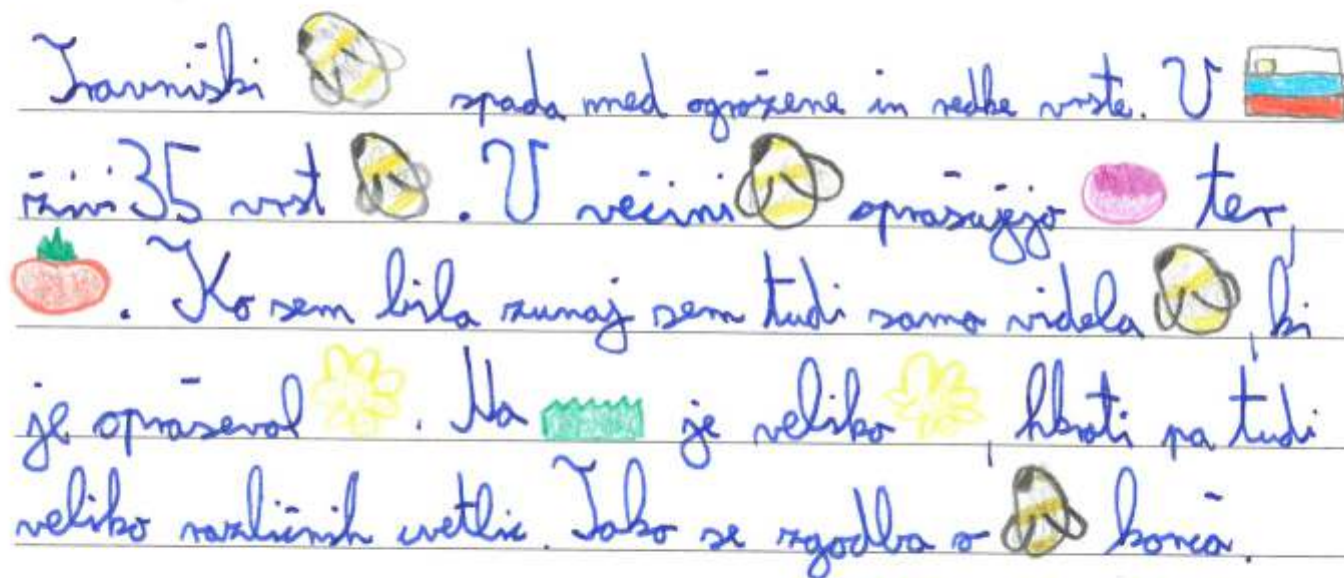 Travniški spada med ogrožene in redke vrste. V
živi 35 vrst . V večini oprašujejo ter
. Ko sem bila zunaj sem tudi sama videla , ki
je opraševal . Na je veliko , hkrati pa tudi
veliko različnih cvetlic. Tako se zgodba o konča.